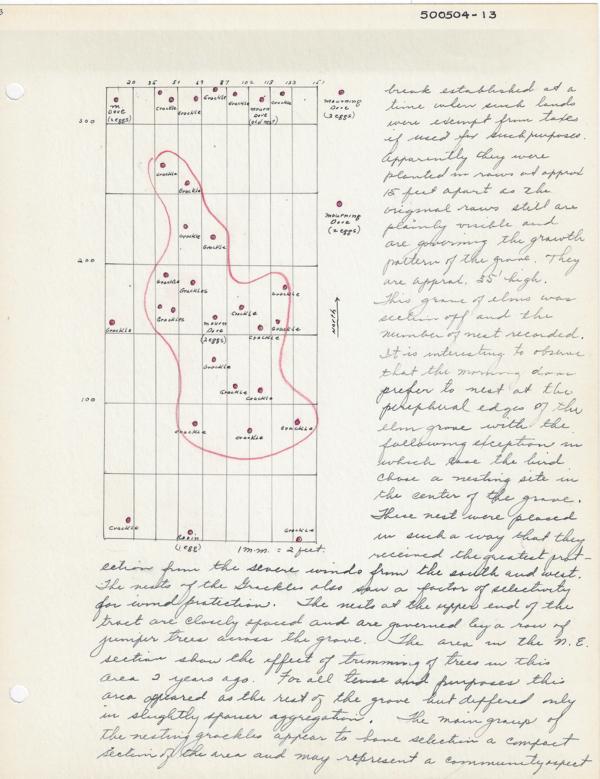 3
500504-13
20 35 51 69 87 102 118 133 151
300
200
100
m. Dove (2 eggs)
Grackle
Grackle
Grackle
Grackle
mourn Dove (old nest)
Grackle
mourning Dove (2 eggs)
Grackle
Grackle
mourning Dove (2 eggs)
Grackle
Grackle
Grackle
Grackles
Grackle
Grackles
Grackle
Grackle
mourn Dove (2 eggs)
Grackle
Grackle
Grackle
Grackle
Grackle
Grackle
Grackle
Grackle
Grackle
Grackle
Robin (1 egg)
Grackle
North
1 m.m. = 2 feet.
break established at a
time when such lands
were exempt from taxes
if used for such purposes.
Apparently they were
planted in rows at approx
15 feet apart as the
original rows still are
plainly visible and
are governing the growth
pattern of the grove. They
are approx. 35' high.
This grove of elms was
section off and the
number of nest recorded.
It is interesting to observe
that the morning dove
prefer to nest at the
peripheral edges of the
elm grove with the
following exception in
which case the bird
chose a nesting site in
the center of the grove.
These nest were placed
in such a way that they
received the greatest prot-
ection from the severe winds from the south and west.
The nests of the Grackles also saw a factor of selectivity
for wind protection. The nests at the upper end of the
tract are closely spaced and are governed by a row of
juniper trees across the grove. The area in the N.E.
section show the effect of trimming of trees in this
area 2 years ago. For all tense and purposes this
area appeared as the rest of the grove but differed only
in slightly sparser aggregation. The main group of
the nesting grackles appear to have selection a compact
section of the area and may represent a community aspect